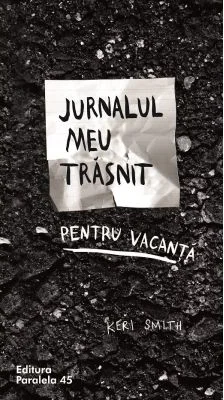 JURNALUL
MEU
TRĂSNIT
PENTRU VACANȚA
KERI SMITH
Editura
Paralela 45